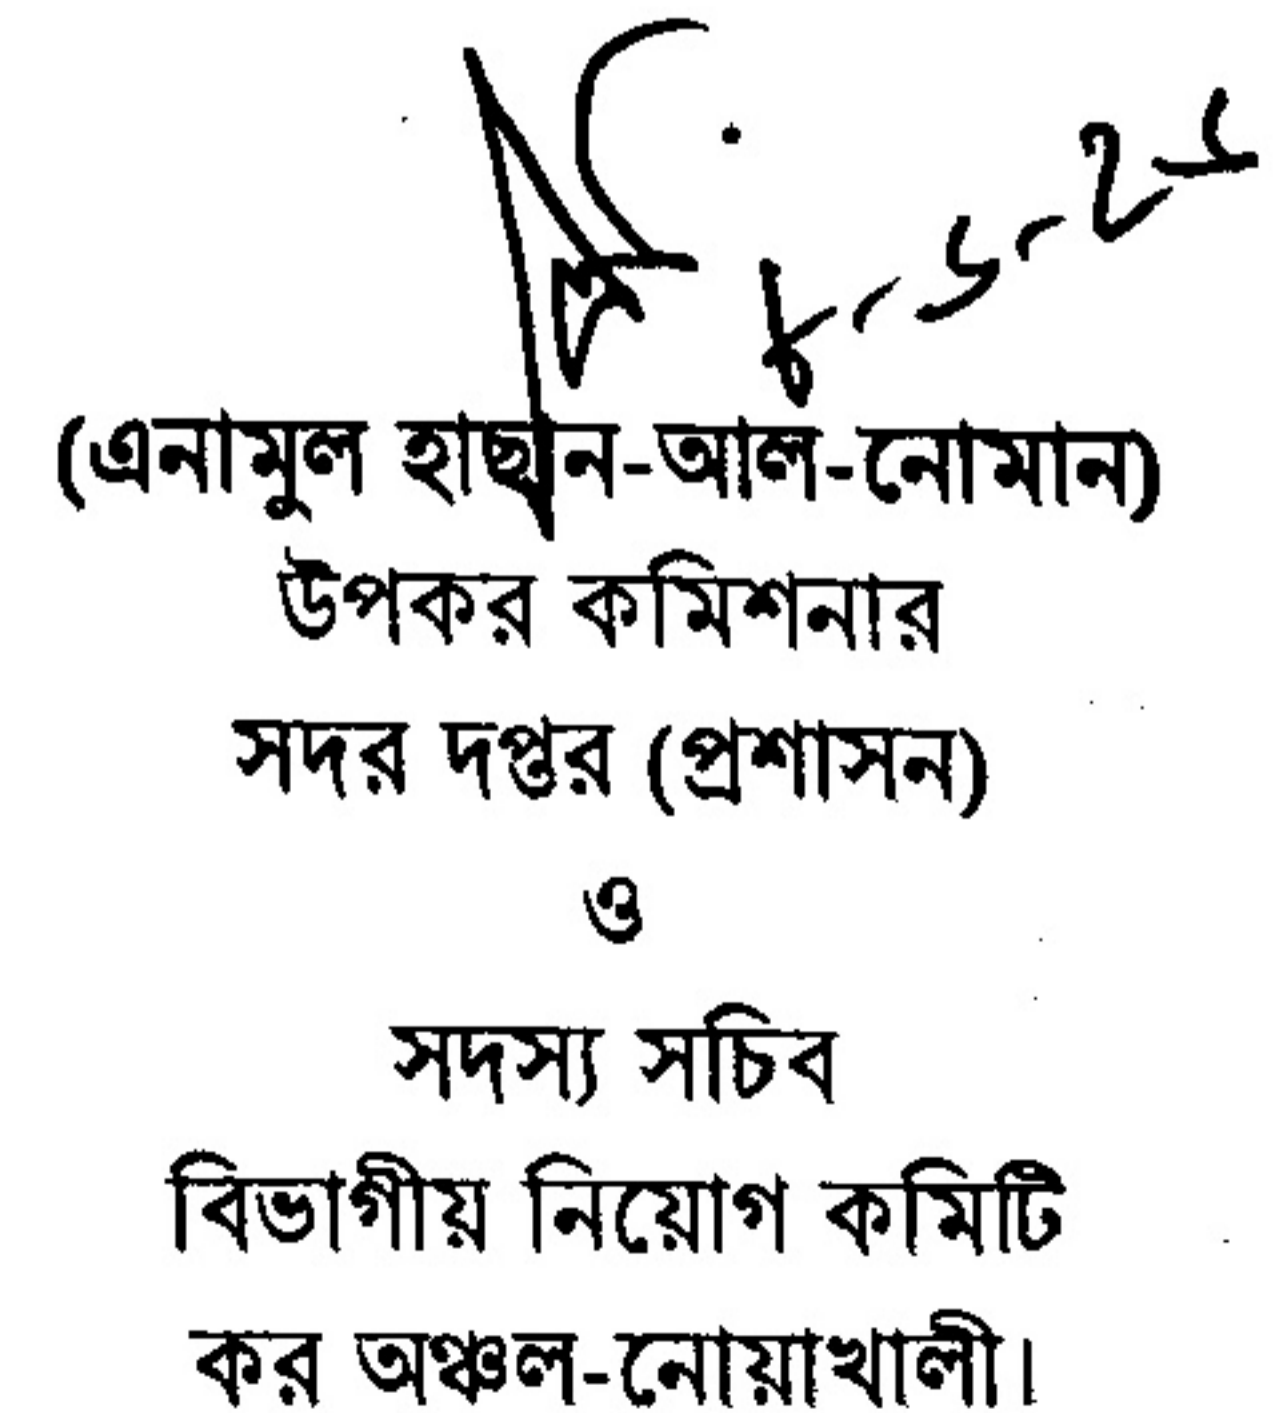 (এনামুল হাছান-আল-নোমান)
উপকর কমিশনার
সদর দপ্তর (প্রশাসন)
ও
সদস্য সচিব
বিভাগীয় নিয়োগ কমিটি
কর অঞ্চল-নোয়াখালী।